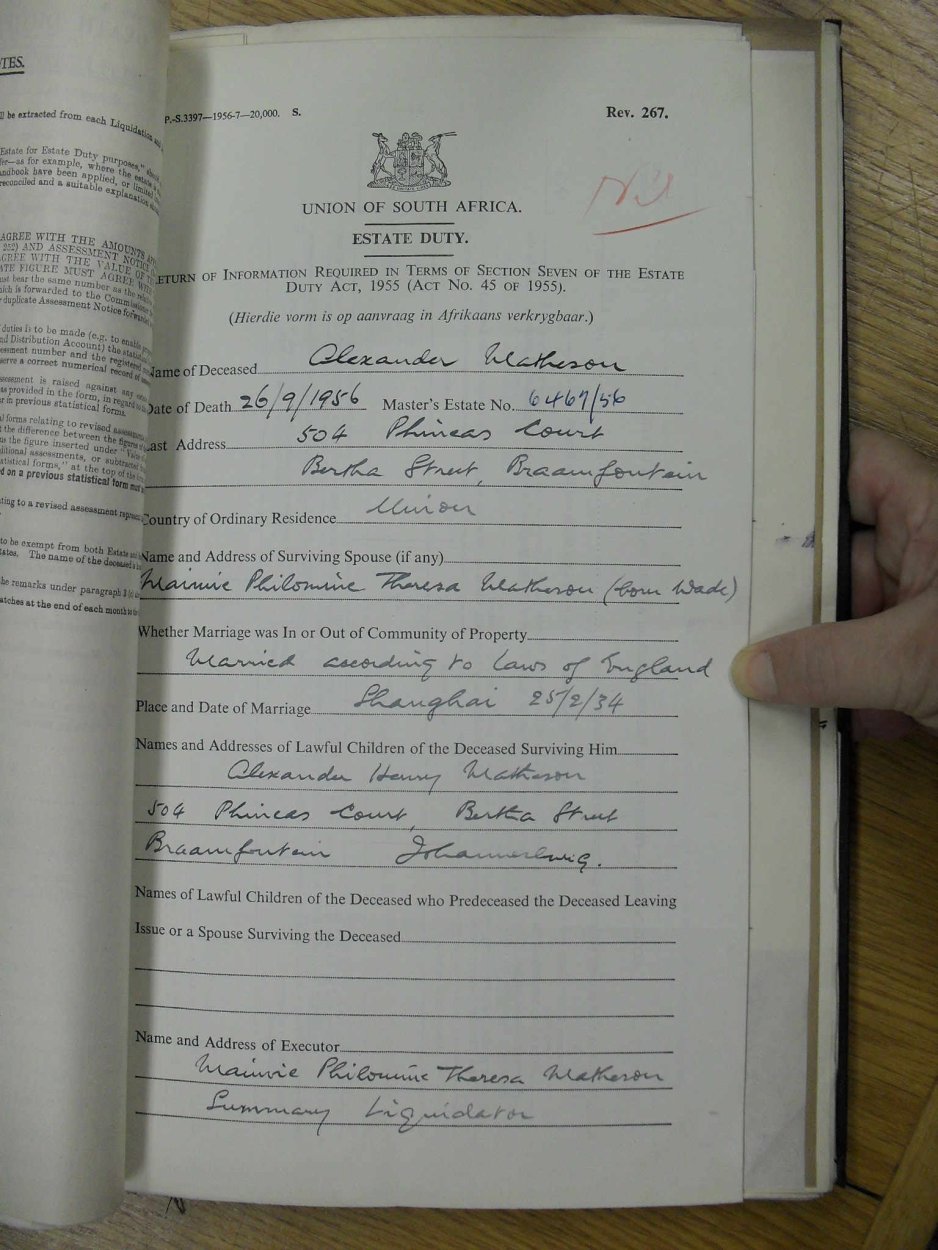 TES.
ll be extracted from each Liquidation and
Estate for Estate Duty purposes,"
fer—as for example, where the estate
andbook have been applied, or limited
reconciled and a suitable explanation
AGREE WITH THE AMOUNTS
252) AND ASSESSMENT NOTICE
AGREE WITH THE VALUE OF
ATE FIGURE MUST AGREE WITH
ust bear the same number as the
hich is forwarded to the Commissioner
duplicate Assessment Notice forwarded
duties is to be made (e.g. to enable
nd Distribution Account) the
essment number and the registered
serve a correct numerical record of
ssessment is raised against any
as provided in the form, in regard to
r in previous statistical forms.
al forms relating to revised
t the difference between the figures
us the figure inserted under
ditional assessments, or subtracted
tatistical forms," at the top of the
d on a previous statistical form must
ting to a revised assessment
to be exempt from both Estate and
tates. The name of the deceased
he remarks under paragraph
atches at the end of each month to
P.-S.3397—1956-7—20,000. S. Rev. 267.
Nil
UNION OF SOUTH AFRICA.
ESTATE DUTY.
ETURN OF INFORMATION REQUIRED IN TERMS OF SECTION SEVEN OF THE ESTATE
DUTY ACT, 1955 (ACT NO. 45 OF 1955).
(Hierdie vorm is op aanvraag in Afrikaans verkrygbaar.)
Name of Deceased Alexander Matheson
Date of Death 26/9/1956 Master's Estate No. 6467/56
Last Address 504 Phineas Court
Bertha Street, Braamfontein
Country of Ordinary Residence Union
Name and Address of Surviving Spouse (if any)
Mainie Philomine Theresa Matheson (born Wade)
Whether Marriage was In or Out of Community of Property
Married according to Laws of England
Place and Date of Marriage Shanghai 25/2/34
Names and Addresses of Lawful Children of the Deceased Surviving Him
Alexander Henry Matheson
504 Phineas Court, Bertha Street
Braamfontein Johannesburg.
Names of Lawful Children of the Deceased who Predeceased the Deceased Leaving
Issue or a Spouse Surviving the Deceased
Name and Address of Executor
Mainie Philomine Theresa Matheson
Summary Liquidator